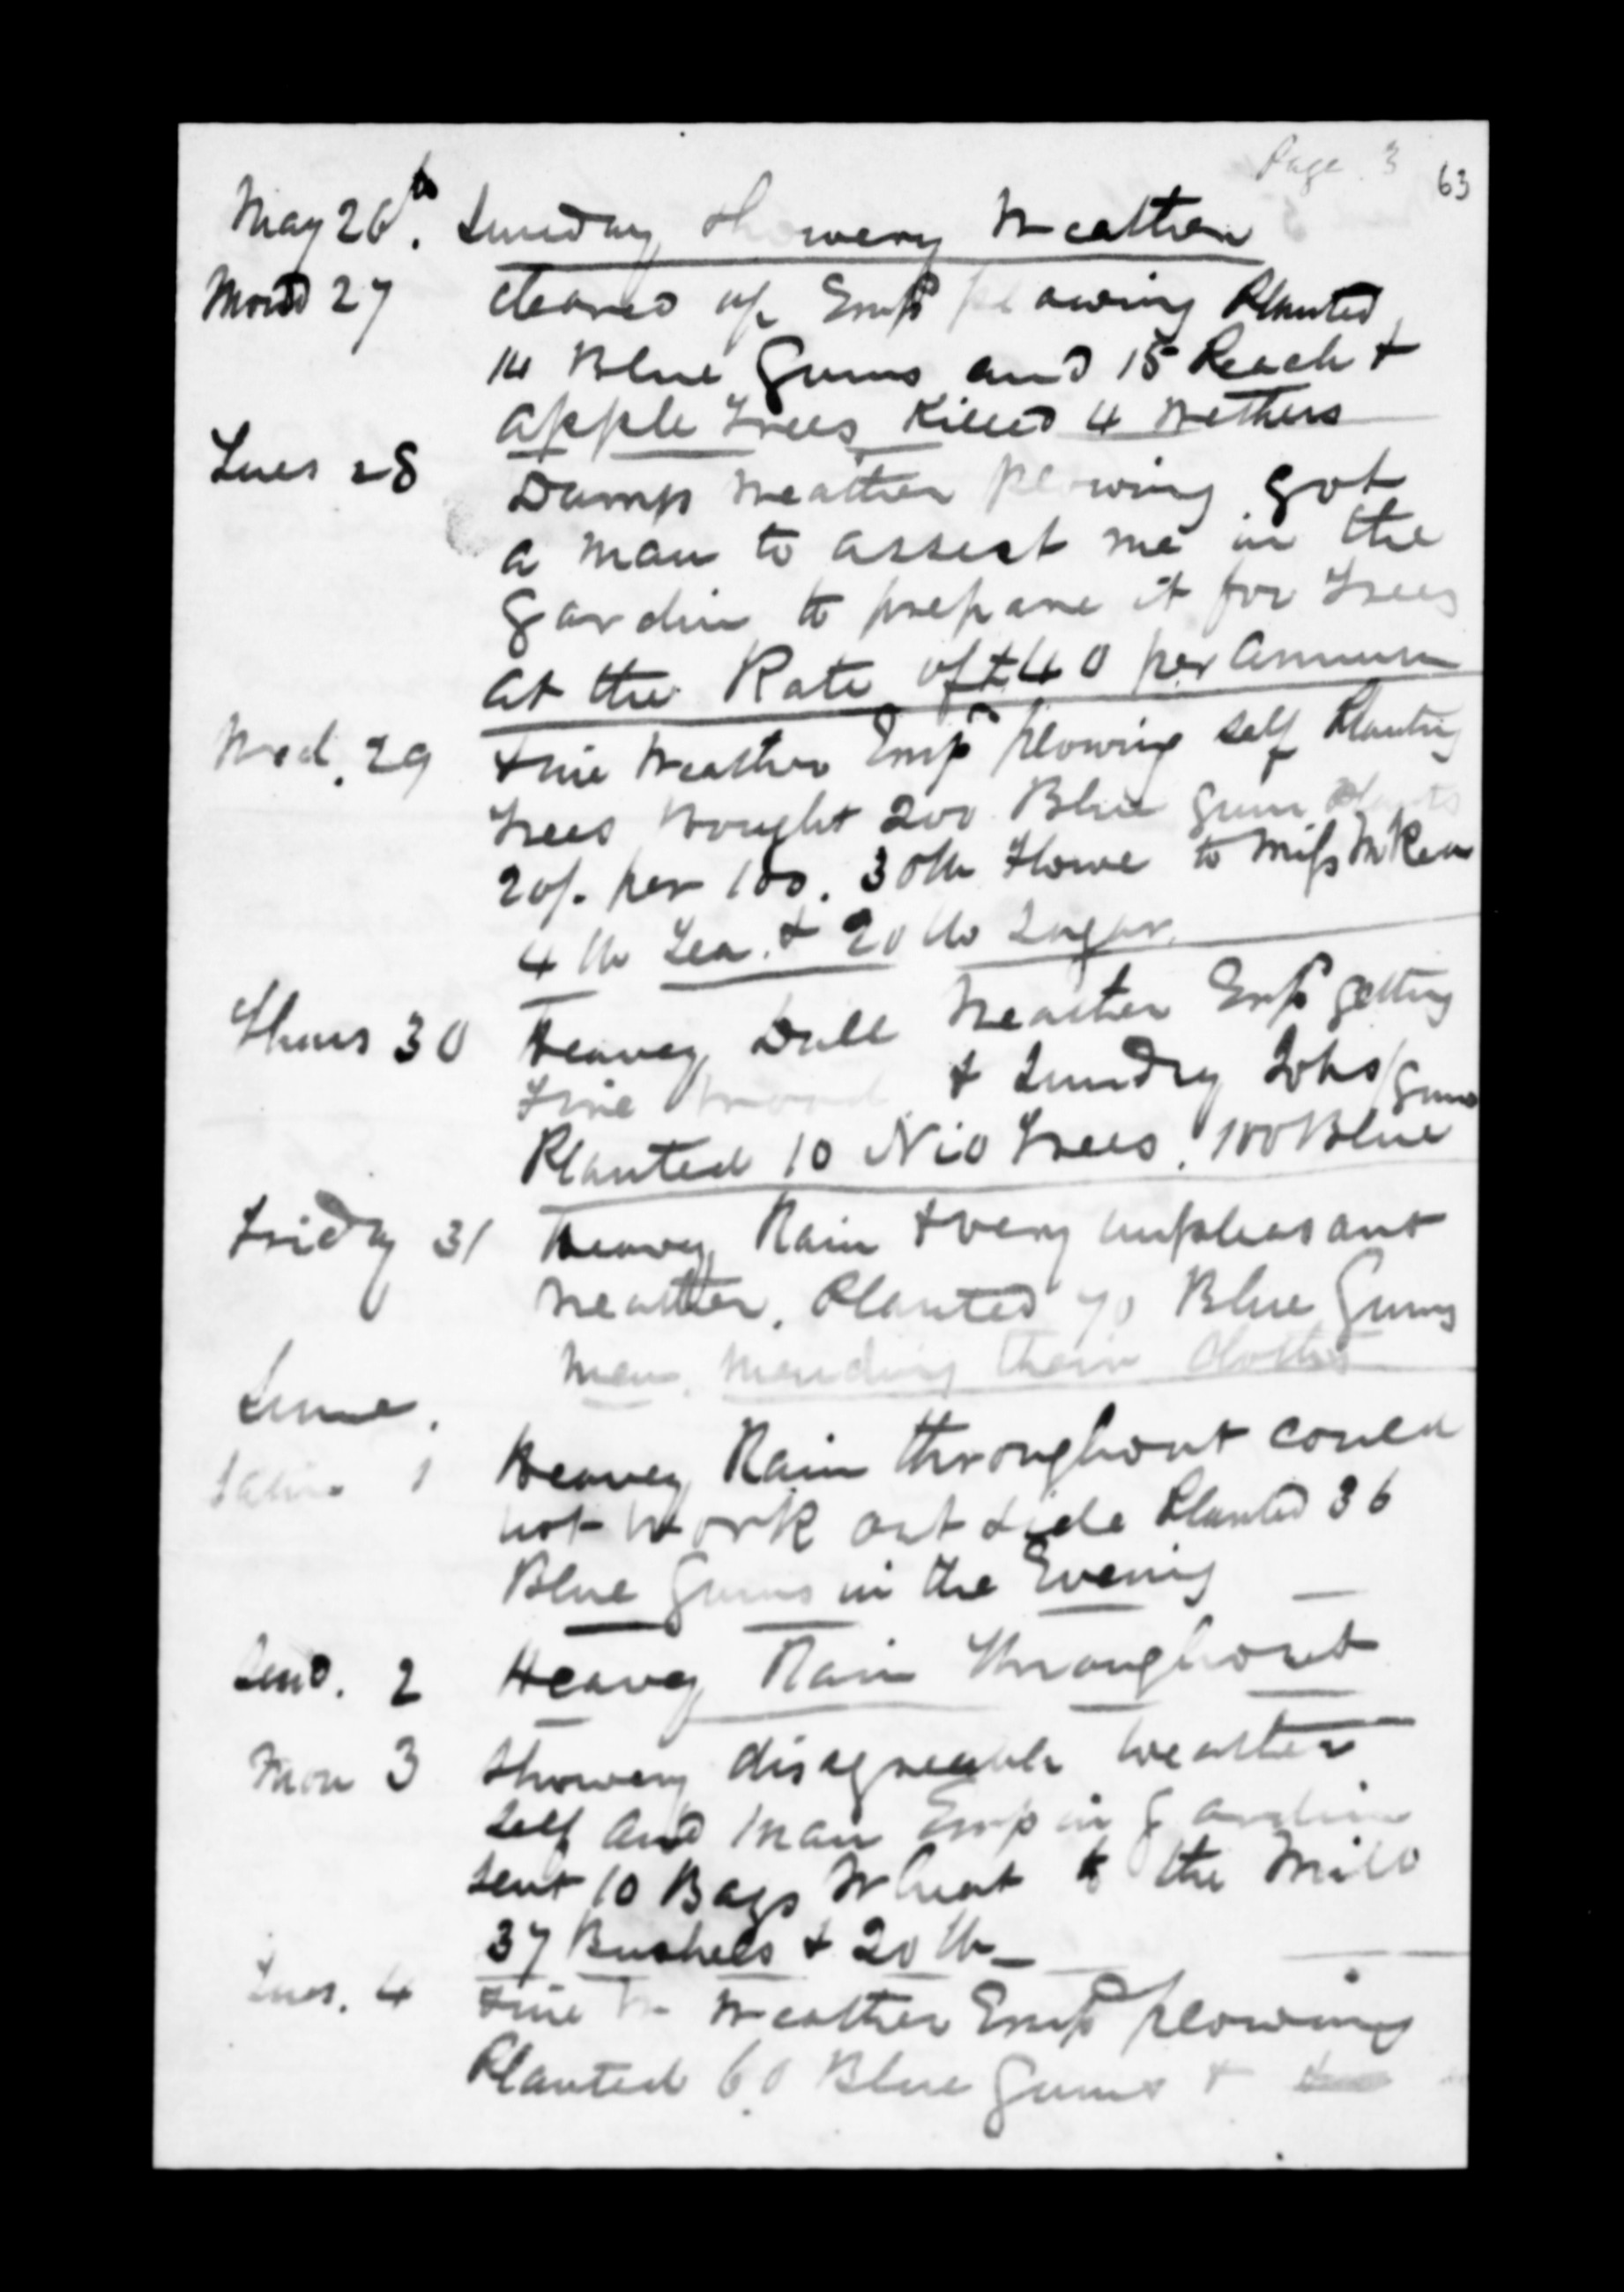 Page 3
63
May 26th. Sunday showery Weather
Mond 27 cleared up Empd plowing Planted
14 Blue Gums and 15 Peach &
apple Trees Killed 4 Wethers
Tues 28 Damp Weather plowing got
a man to assest me in the
Gardin to prepare it for Trees
at the Rate of £40 per annum
Wed. 29 Fine Weather Empd plowing self Planting
Trees bought 200 Blue Gum Plants
20/- per 100. 30 lb Flowe to Miss
4 lb Tea. & 20 lb Sugar.
Thurs 30 Heavey Dull Weather Empd getting
Fire wood & Sundry Jobs / Gums
Planted 10 Trees. 100 Blue
Friday 31 Heavey Rain & very unpleasant
Weather. Planted 70 Blue Gums
Men. Mending their Clothes
June.
1 Heavey Rain throughout could
not Work out side Planted 36
Blue Gums in the Evening
Sund. 2 Heavey Rain Throughout
Mon 3 Showery disagreeable weather
Self and Man Emp in Gardin
Sent 10 Bags Wheat to the Mill
37 Bushels & 20 lb
Tues. 4 Fine W Weather Empd plowing
Planted 60 Blue Gums &